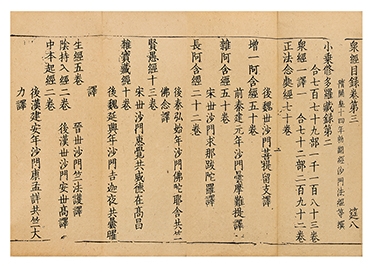 衆經目錄卷第三　　　　　　　　　筵八
隋開皇十四年勑翻經沙門法經等撰
小乘修多羅藏錄第二
合七百七十九部一千一百八十三卷
衆經一譯一　合七十二部二百九十二卷
正法念處經七十卷
後魏世沙門菩提留支譯
增一阿含經五十卷
前秦建元年沙門曇摩難提譯
雜阿含經五十卷
宋世沙門求那跋陀羅譯
長阿含經二十二卷
後秦弘始年沙門佛陀耶舍共竺
佛念譯
賢愚經十三卷
宋世沙門惠覺共威德在高昌
譯
雜寶藏經十卷
後魏延興年沙門吉迦夜共曇曜
譯
生經五卷　　晉世沙門竺法護譯
陰持入經二卷　後漢世沙門安世高譯
中本起經二卷
後漢建安年沙門康孟詳共竺大
力譯